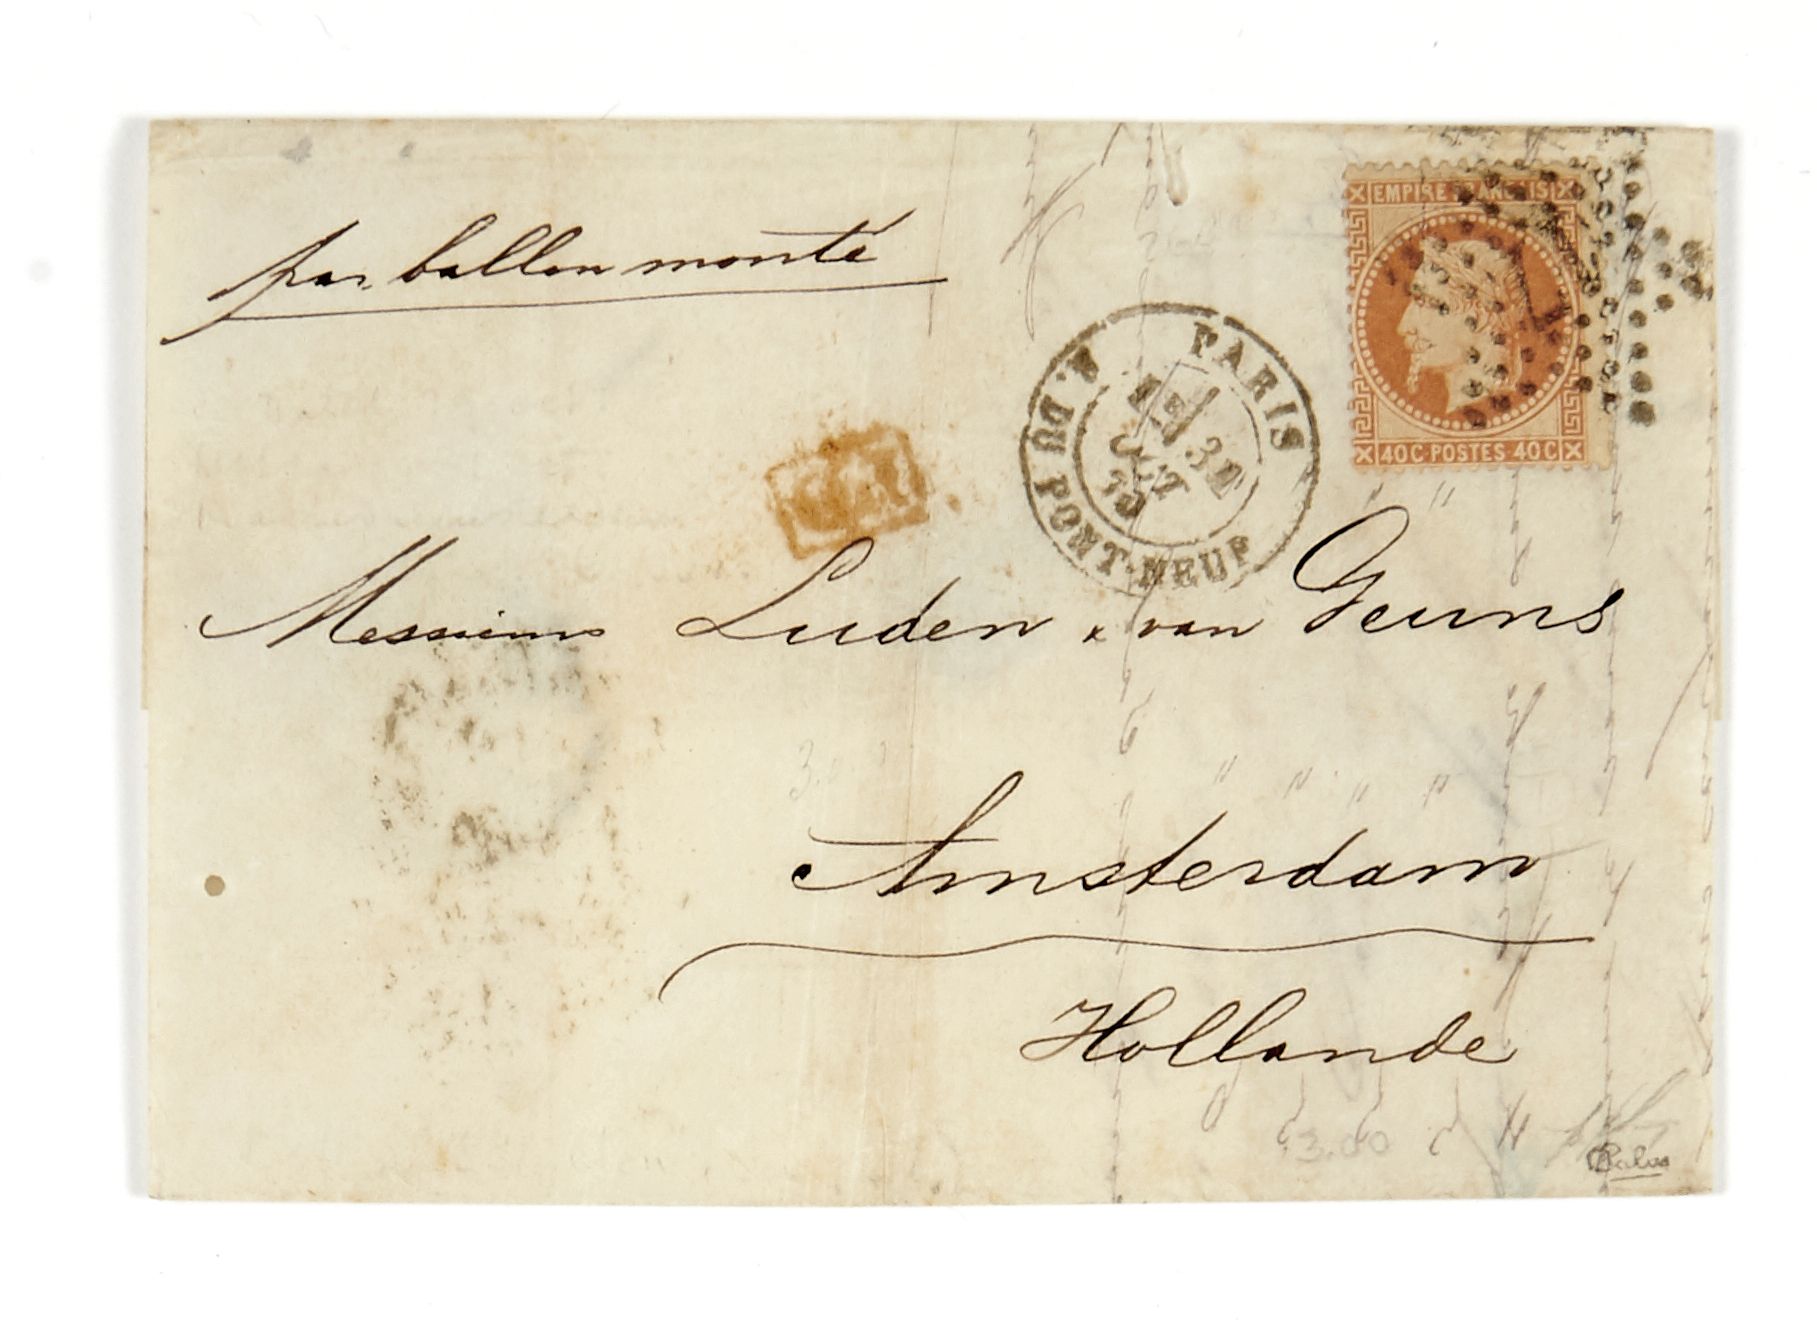 par ballon monté
EMPIRE FRANCAIS
40C POSTES 40C
PARIS
R. DU PONT-NEUF
OCT
70
PD
Messieurs Luden & van Geuns
Amsterdam
Hollande
3.00
Calves